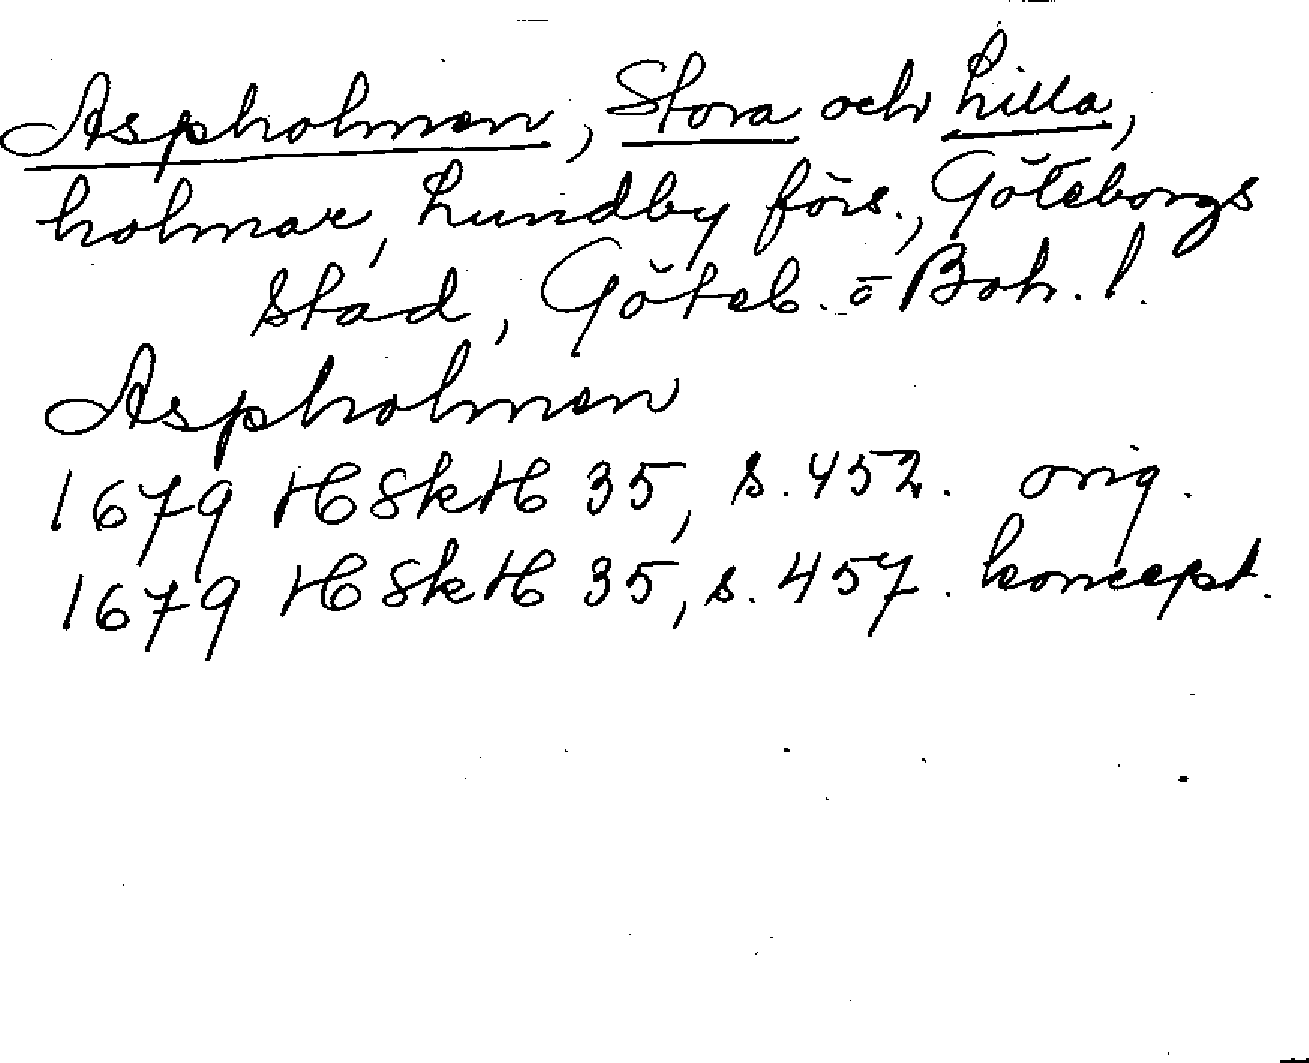 Aspholmen, Stora och Lilla,
holmar, Lundby förs., Göteborgs
stad, Göteb. o Boh. l.
Aspholmen
1679 HSkH 35, s. 452. orig.
1679 HSkH 35, s. 457. koncept.